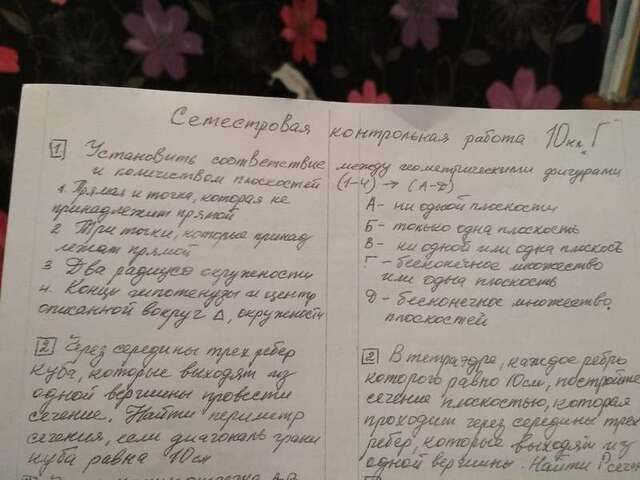 Семестровая контрольная работа 10 кл. Г
1 Установить соответствие между геометрическими фигурами
и количеством плоскостей (1-4) → (А-Д)
1. Прямая и точка, которая не
принадлежит прямой
2 Три точки, которые принад
лежат прямой
3 Два радиуса окружности
4. Концы гипотенузы и центр
описанной вокруг Δ, окружности
А - ни одной плоскости
Б - только одна плоскость
В - ни одной или одна плоскость
Г - бесконечное множество
или одна плоскость
Д - бесконечное множество
плоскостей
2 Через середины трех ребер
куба, которые выходят из
одной вершины провести
сечение. Найти периметр
сечения, если диагональ грани
куба равна 10см
2 В тетраэдре, каждое ребро
которого равно 10см, постройте
сечение плоскостью, которая
проходит через середины трех
ребер, которые выходят из
одной вершины. Найти P сечен